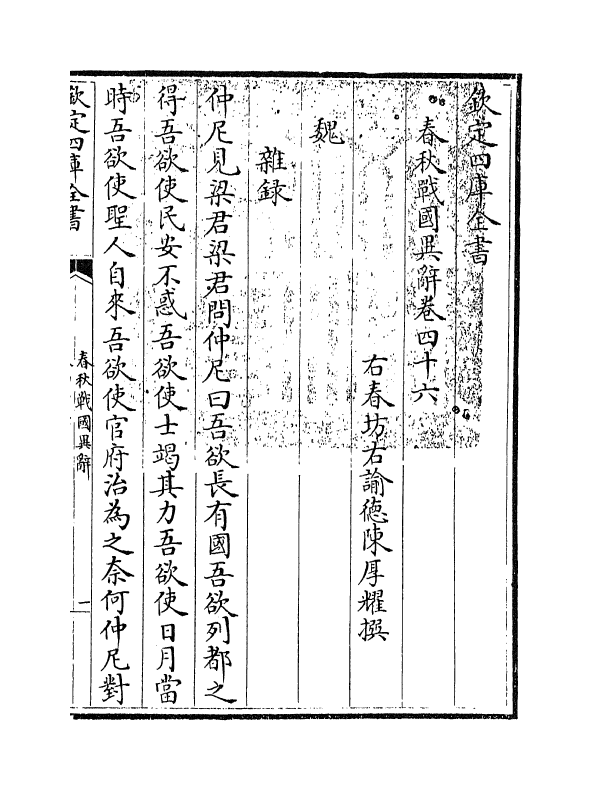 欽定四庫全書
春秋戰國異辭卷四十六
右春坊右諭德陳厚耀撰
魏
雜録
仲尼見梁君梁君問仲尼曰吾欲長有國吾欲列都之
得吾欲使民安不惑吾欲使士竭其力吾欲使日月當
時吾欲使聖人自來吾欲使官府治為之奈何仲尼對
欽定四庫全書
春秋戰國異辭
一